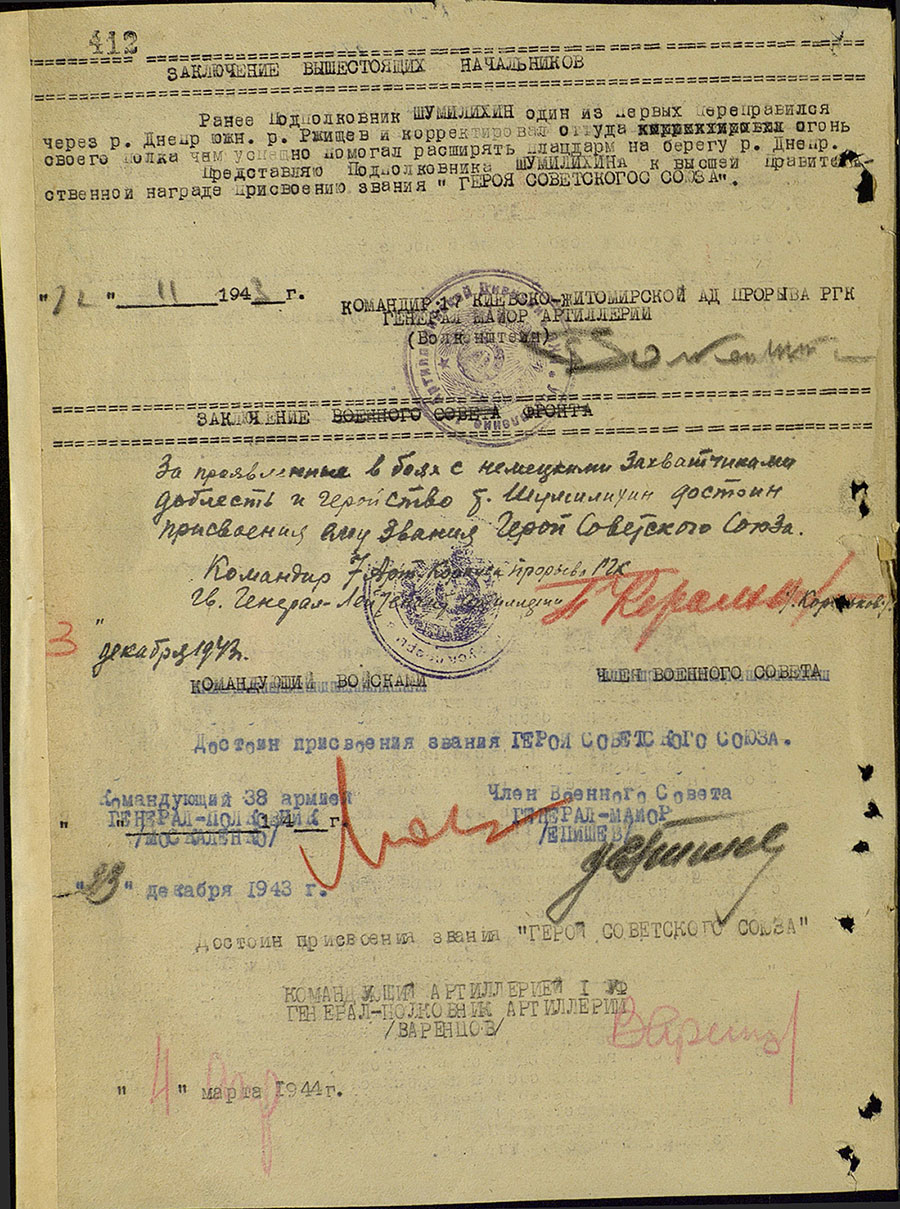 412
ЗАКЛЮЧЕНИЕ ВЫШЕСТОЯЩИХ НАЧАЛЬНИКОВ
Ранее Подполковник ШУМИЛИХИН один из первых переправился
через р. Днепр южн. р. Ржищев и корректировал оттуда огонь
своего полка чем успешно помогал расширять плацдарм на берегу р. Днепр.
Представляю Подполковника ШУМИЛИХИНА к высшей правитель-
ственной награде присвоению звания " ГЕРОЯ СОВЕТСКОГОС СОЮЗА".
"12" 11 1943 г.
КОМАНДИР 17 КИЕВСКО-ЖИТОМИРСКОЙ АД ПРОРЫВА РГК
ГЕНЕРАЛ МАЙОР АРТИЛЛЕРИИ
(Волкенштейн)
ЗАКЛЮЧЕНИЕ ВОЕННОГО СОВЕТА ФРОНТА
За проявленные в боях с немецкими захватчиками
доблесть и геройство т. Шумилихин достоин
присвоения ему Звания Герой Советского Союза.
Командир 7 Арт. Корпуса прорыва РГК
Гв. Генерал-Лейтенант артиллерии
"3" декабря 1943г.
КОМАНДУЮЩИЙ ВОЙСКАМИ ЧЛЕН ВОЕННОГО СОВЕТА
Достоин присвоения звания ГЕРОЙ СОВЕТСКОГО СОЮЗА.
Командующий 38 армией Член Военного Совета
ГЕНЕРАЛ-ПОЛКОВНИК ГЕНЕРАЛ-МАЙОР
/МОСКАЛЕНКО/ /ЕПИШЕВ/
" " 194 г.
"23" декабря 1943 г.
Достоин присвоения звания "ГЕРОЙ СОВЕТСКОГО СОЮЗА"
КОМАНДУЮЩИЙ АРТИЛЛЕРИЕЙ I УФ
ГЕНЕРАЛ-ПОЛКОВНИК АРТИЛЛЕРИИ
/ВАРЕНЦОВ/
"4" марта 1944г.